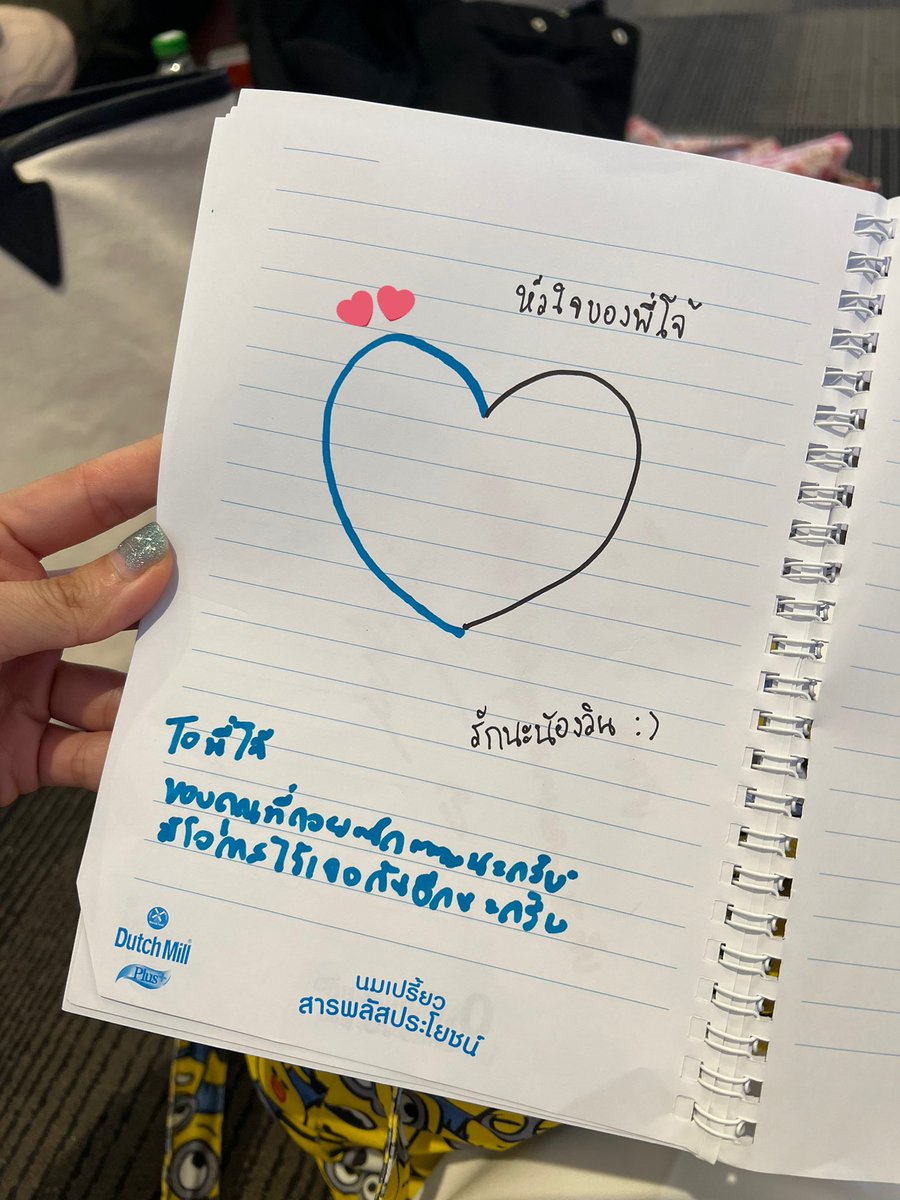 หัวใจของพี่โจ้
รักนะน้องวิน :)
To พี่โจ้
ขอบคุณที่ นะครับ
มีโอกาสไว้เจอกันอีกนะครับ
Dutch Mill
Plus+
นมเปรี้ยว
สารพลัสประโยชน์